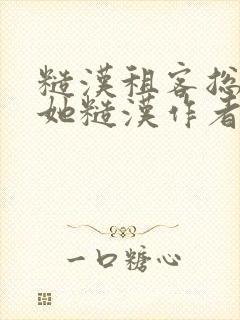 糙漢租客捻
她糙漢作者
一口糖心